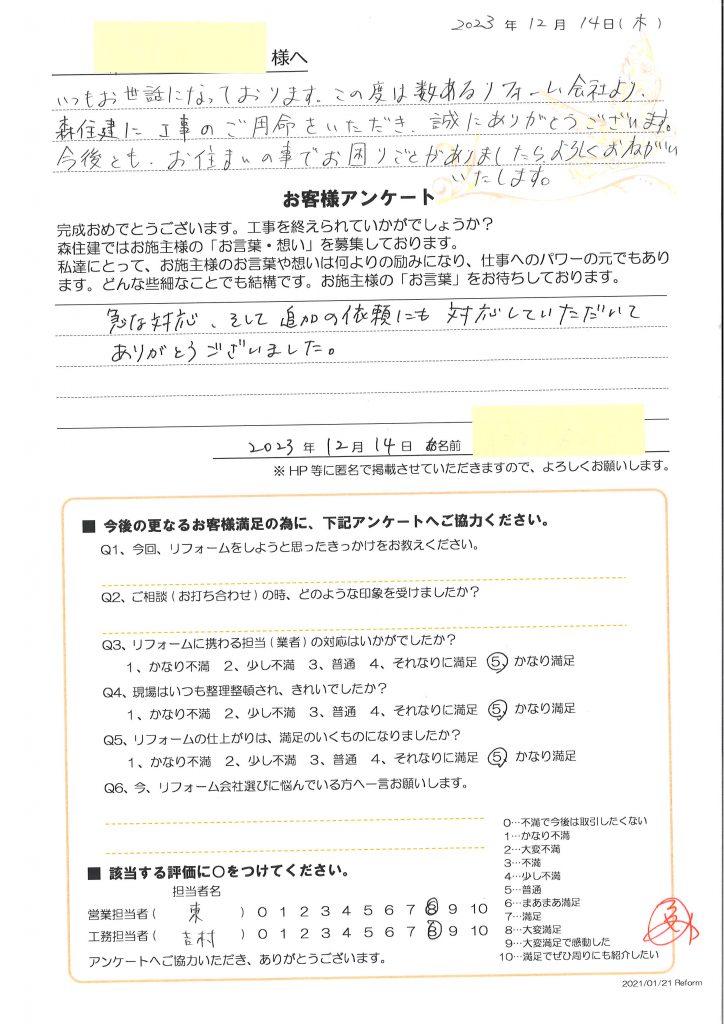 2023年12月14日(木)
様へ
いつもお世話になっております。この度は数あるリフォーム会社より、
森住建に工事のご用命をいただき、誠にありがとうございます。
今後とも、お住まいの事でお困りごとがありましたらよろしくおねがい
いたします。
お客様アンケート
完成おめでとうございます。工事を終えられていかがでしょうか？
森住建ではお施主様の「お言葉・想い」を募集しております。
私達にとって、お施主様のお言葉や想いは何よりの励みになり、仕事へのパワーの元でもあり
ます。どんな些細なことでも結構です。お施主様の「お言葉」をお待ちしております。
急な対応、そして追加の依頼にも対応していただいて
ありがとうございました。
2023年12月14日 お名前
※HP等に匿名で掲載させていただきますので、よろしくお願いします。
■ 今後の更なるお客様満足の為に、下記アンケートへご協力ください。
Q1、今回、リフォームをしようと思ったきっかけをお教えください。
Q2、ご相談(お打ち合わせ)の時、どのような印象を受けましたか？
Q3、リフォームに携わる担当(業者)の対応はいかがでしたか？
1、かなり不満 2、少し不満 3、普通 4、それなりに満足 5、かなり満足
Q4、現場はいつも整理整頓され、きれいでしたか？
1、かなり不満 2、少し不満 3、普通 4、それなりに満足 5、かなり満足
Q5、リフォームの仕上がりは、満足のいくものになりましたか？
1、かなり不満 2、少し不満 3、普通 4、それなりに満足 5、かなり満足
Q6、今、リフォーム会社選びに悩んでいる方へ一言お願いします。
■ 該当する評価に○をつけてください。
担当者名
営業担当者(東)0 1 2 3 4 5 6 7 8 9 10
工務担当者(吉村)0 1 2 3 4 5 6 7 8 9 10
アンケートへご協力いただき、ありがとうございます。
0…不満で今後は取引したくない
1…かなり不満
2…大変不満
3…不満
4…少し不満
5…普通
6…まあまあ満足
7…満足
8…大変満足
9…大変満足で感動した
10…満足でぜひ周りにも紹介したい
2021/01/21 Reform